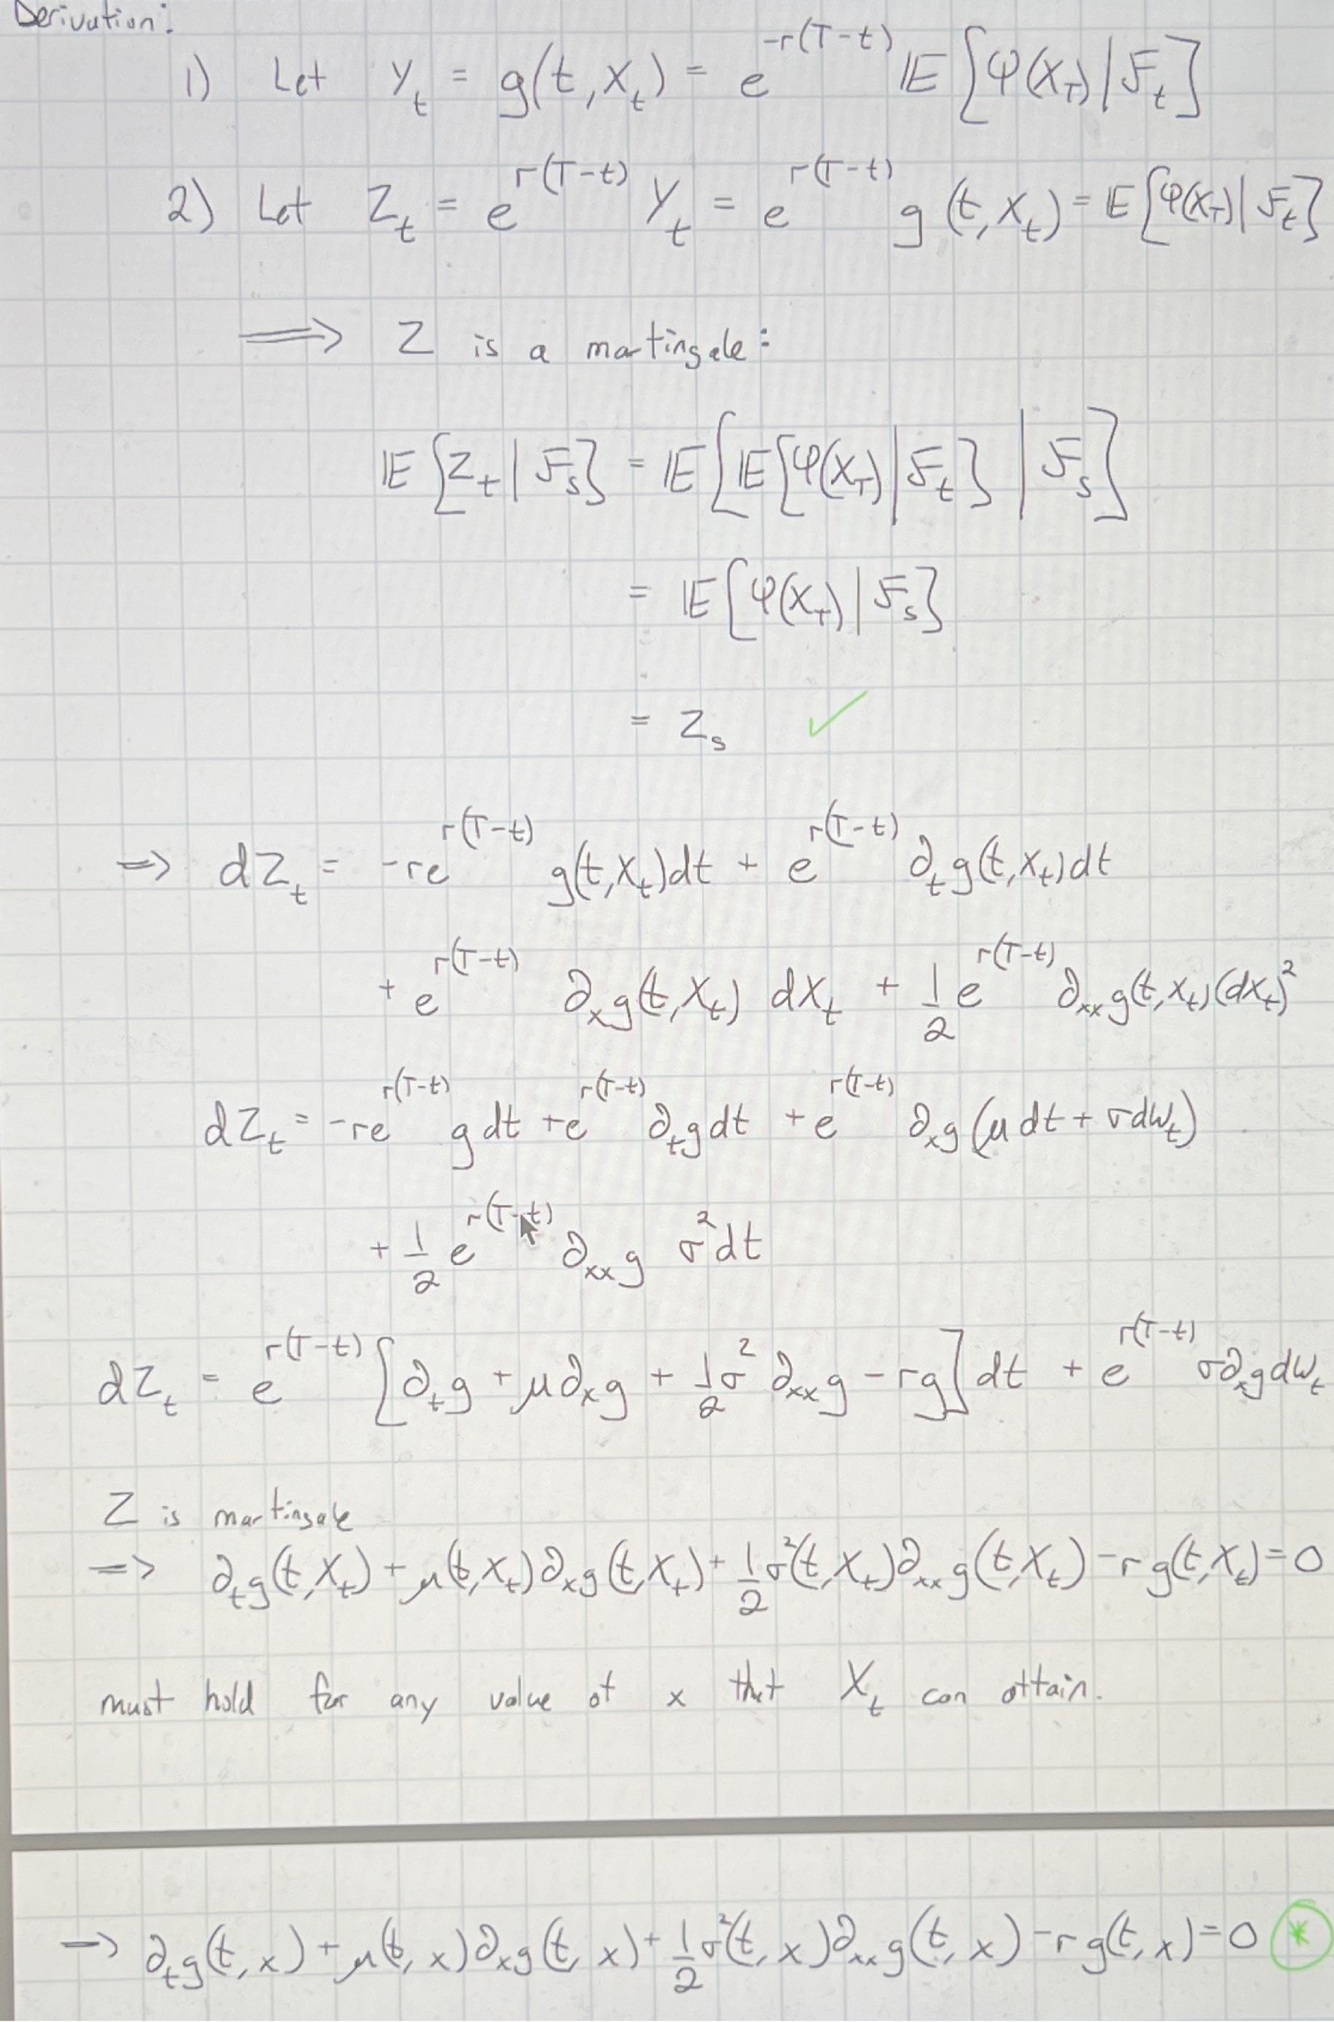 Derivation:
1) Let Y_t = g(t,X_t) = e^{-r(T-t)} 𝔼[φ(X_T)|ℱ_t]
2) Let Z_t = e^{r(T-t)} Y_t = e^{r(T-t)} g(t,X_t) = 𝔼[φ(X_T)|ℱ_t]
⟹ Z is a martingale:
𝔼[Z_t|ℱ_s] = 𝔼[𝔼[φ(X_T)|ℱ_t] | ℱ_s]
= 𝔼[φ(X_T)|ℱ_s]
= Z_s ✓
⇒ dZ_t = -re^{r(T-t)} g(t,X_t)dt + e^{r(T-t)} ∂_t g(t,X_t)dt
+ e^{r(T-t)} ∂_x g(t,X_t) dX_t + 1/2 e^{r(T-t)} ∂_xx g(t,X_t)(dX_t)^2
dZ_t = -re^{r(T-t)} g dt + e^{r(T-t)} ∂_t g dt + e^{r(T-t)} ∂_x g(μ dt + σ dW_t)
+ 1/2 e^{r(T-t)} ∂_xx g σ^2 dt
dZ_t = e^{r(T-t)} [∂_t g + μ∂_x g + 1/2 σ^2 ∂_xx g - rg] dt + e^{r(T-t)} σ∂_x g dW_t
Z is martingale
⇒ ∂_t g(t,X_t) + μ(t,X_t)∂_x g(t,X_t) + 1/2 σ^2(t,X_t)∂_xx g(t,X_t) - r g(t,X_t) = 0
must hold for any value of x that X_t can attain.
→ ∂_t g(t,x) + μ(t,x)∂_x g(t,x) + 1/2 σ^2(t,x)∂_xx g(t,x) - r g(t,x) = 0 (*)